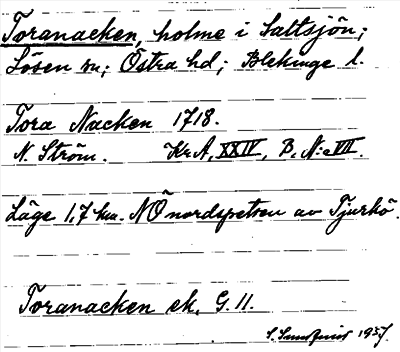 Toranacken, holme i Saltsjön;
Lösen sn; Östra hd; Blekinge l.
Tora Nacken 1718.
N. Ström. Kr.A, XXIV, B, N:o VII.
Läge 1,7 km. NÖ nordspetsen av Tjurkö.
Toranacken ek. G. 11.
S. Sundquist 1937.